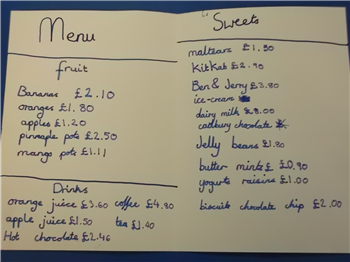 Menu
fruit
Bananas £2.10
oranges £1.80
apples £1.20
pinnaple pots £2.50
mango pots £1.11
Drinks
orange juice £3.60 coffee £4.80
apple juice £1.50 tea £1.40
Hot chocolate £2.46
Sweets
maltears £1.50
KitKat £2.90
Ben & Jerry £3.80
ice-cream
dairy milk £8.00
cadbury chocolate
Jelly beans £1.80
butter mints £0.90
yogurts raisins £1.00
biscuits chocolate chip £2.00